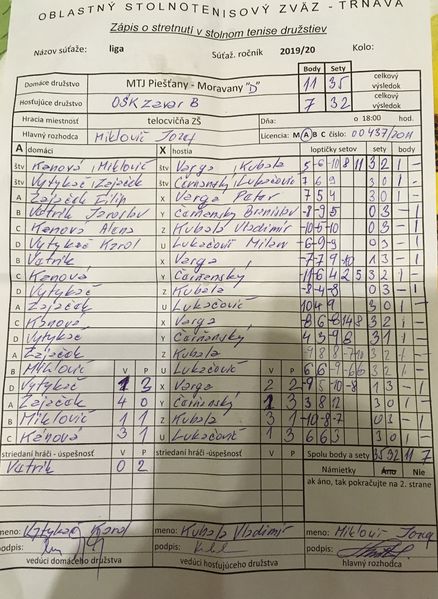 OBLASTNÝ STOLNOTENISOVÝ ZVÄZ - TRNAVA
Zápis o stretnutí v stolnom tenise družstiev
Názov súťaže: liga Súťaž. ročník 2019/20 Kolo:
Body Sety
Domáce družstvo MTJ Piešťany - Moravany "D" 11 35 celkový výsledok
Hosťujúce družstvo OŠK Zavar B 7 32 celkový výsledok
Hracia miestnosť telocvičňa ZŠ Dňa: o 18:00 hod.
Hlavný rozhodca Miklovič Jozef Licencia: M A B C číslo: 00437/2011
A domáci X hostia loptičky setov sety body
štv Kanová Miklovič štv Varga Kubala 5 -6 -10 8 11 3 2 1 -
štv Vytykáč Zajaček štv Čarňanský Lukačovič 7 6 9 3 0 1 -
A Zajaček Filip X Varga Peter 7 5 4 3 0 1 -
B Vatrik Jaroslav Y Čarňenský Branislav -8 -9 -5 0 3 - 1
C Kanová Alena Z Kubala Vladimír -10 -6 -10 0 3 - 1
D Vytykáč Karol U Lukačovič Milan -6 -9 -9 0 3 - 1
B Vatrik X Varga -7 7 -9 -10 1 3 - 1
C Kanová Y Čarňenský -11 6 4 2 5 3 2 1 -
D Vytykáč Z Kubala -8 -4 -8 0 3 - 1
A Zajaček U Lukačovič 10 4 9 3 0 1 -
C Kanová X Varga 3 2 1 -
D Vytykáč Y Čarňenský 3 1 1 -
A Zajaček Z Kubala 3 2 1 -
B Miklovič U Lukačovič V P 3 2 1 -
D Vytykáč 1 3 X Varga 2 2 -9 5 -10 -8 1 3 - 1
A Zajaček 4 0 Y Čarňenský 1 3 3 8 2 3 0 1 -
B Miklovič 1 1 Z Kubala 3 1 -10 -8 -7 0 3 - 1
C Kánová 3 1 U Lukačovič 1 3 6 6 3 3 0 1 -
striedaní hráči - úspešnosť V P striedaní hráči -úspešnosť V P Spolu body a sety 35 32 11 7
Vatrik 0 2 Námietky Áno Nie
ak áno, tak pokračujte na 2. strane
meno: Vytykáč Karol meno: Kubala Vladimír meno: Miklovič Jozef
podpis: podpis: podpis:
vedúci domáceho družstva vedúci hosťujúceho družstva hlavný rozhodca